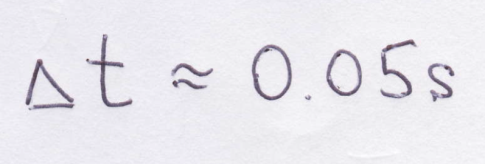 Δt ≈ 0.05s